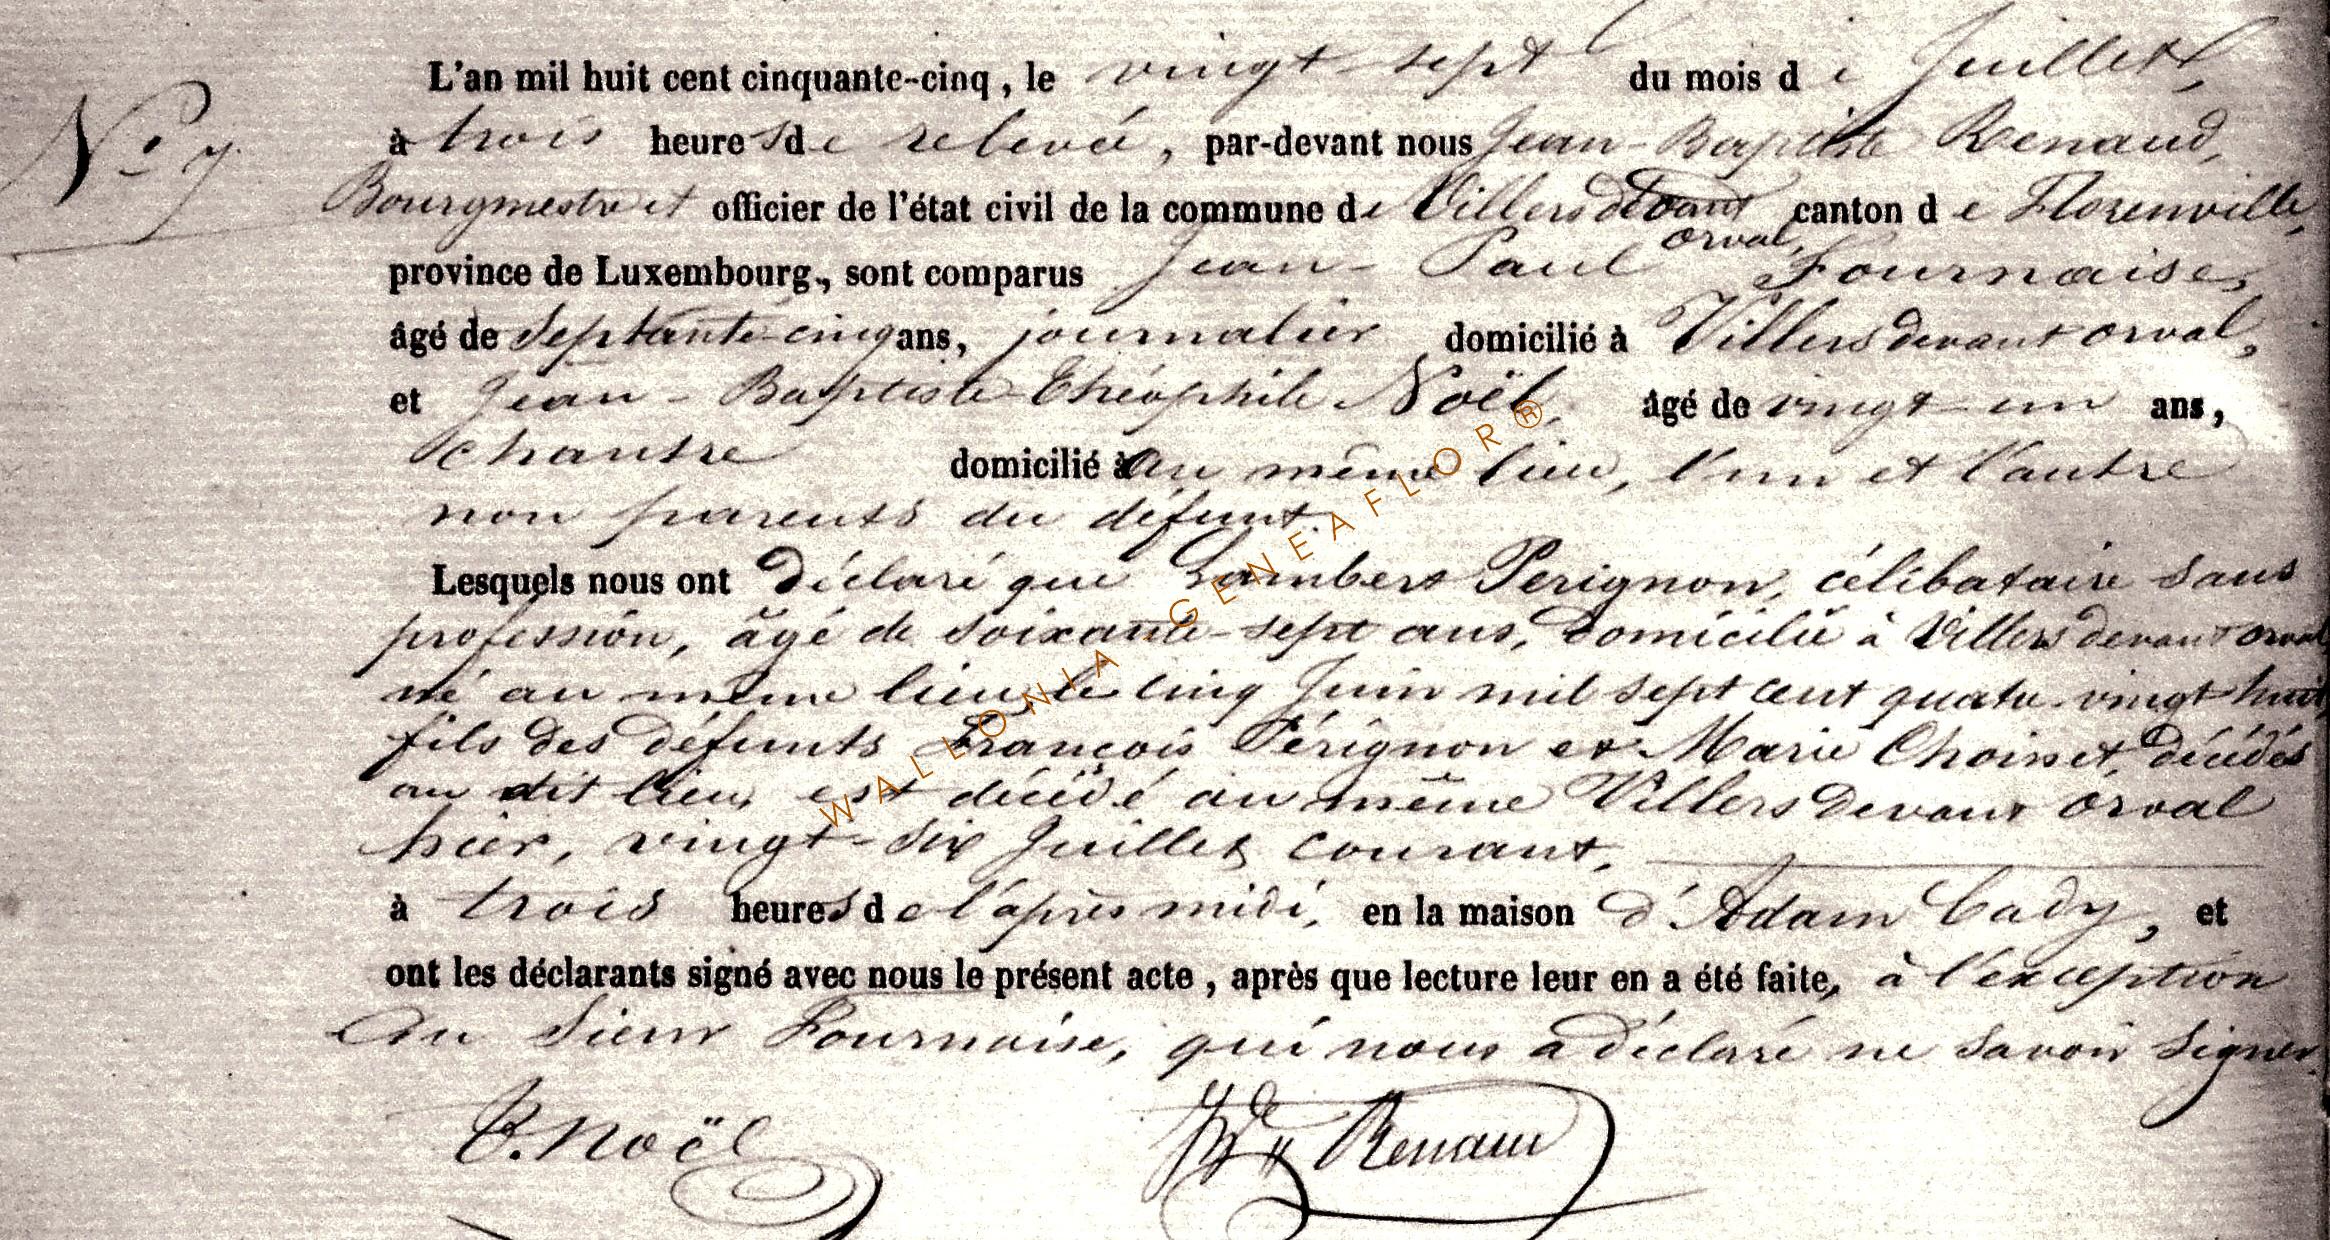 L'an mil huit cent cinquante-cinq, le vingt-sept du mois de Juillet,
N° 7. à trois heures de relevée, par-devant nous Jean-Baptiste Renaud,
Bourgmestre et officier de l'état civil de la commune de Villers devant orval, canton de Florenville,
province de Luxembourg, sont comparus Jean-Paul Fournaise,
âgé de Septante-cinq ans, journalier domicilié à Villers devant orval,
et Jean-Baptiste Théophile Noël, âgé de vingt un ans,
chantre domicilié à au même lieu, l'un et l'autre
non parents du défunt.
Lesquels nous ont déclaré que Lambert Perignon, célibataire sans
profession, âgé de soixante-sept ans, domicilié à Villers devant orval
né au même lieu, le cinq Juin mil sept cent quatre-vingt huit,
fils des défunts François Pérignon et Marie Choisset, décédés
au dit lieu, est décédé au même Villers devant orval
hier, vingt-six Juillet courant,
à trois heures de l'après midi, en la maison d'Adam Cady, et
ont les déclarants signé avec nous le présent acte, après que lecture leur en a été faite, à l'exception
du Sieur Fournaise, qui nous a déclaré ne savoir signer.
Noël Renaud
WALLONIA GENEAFLOR®